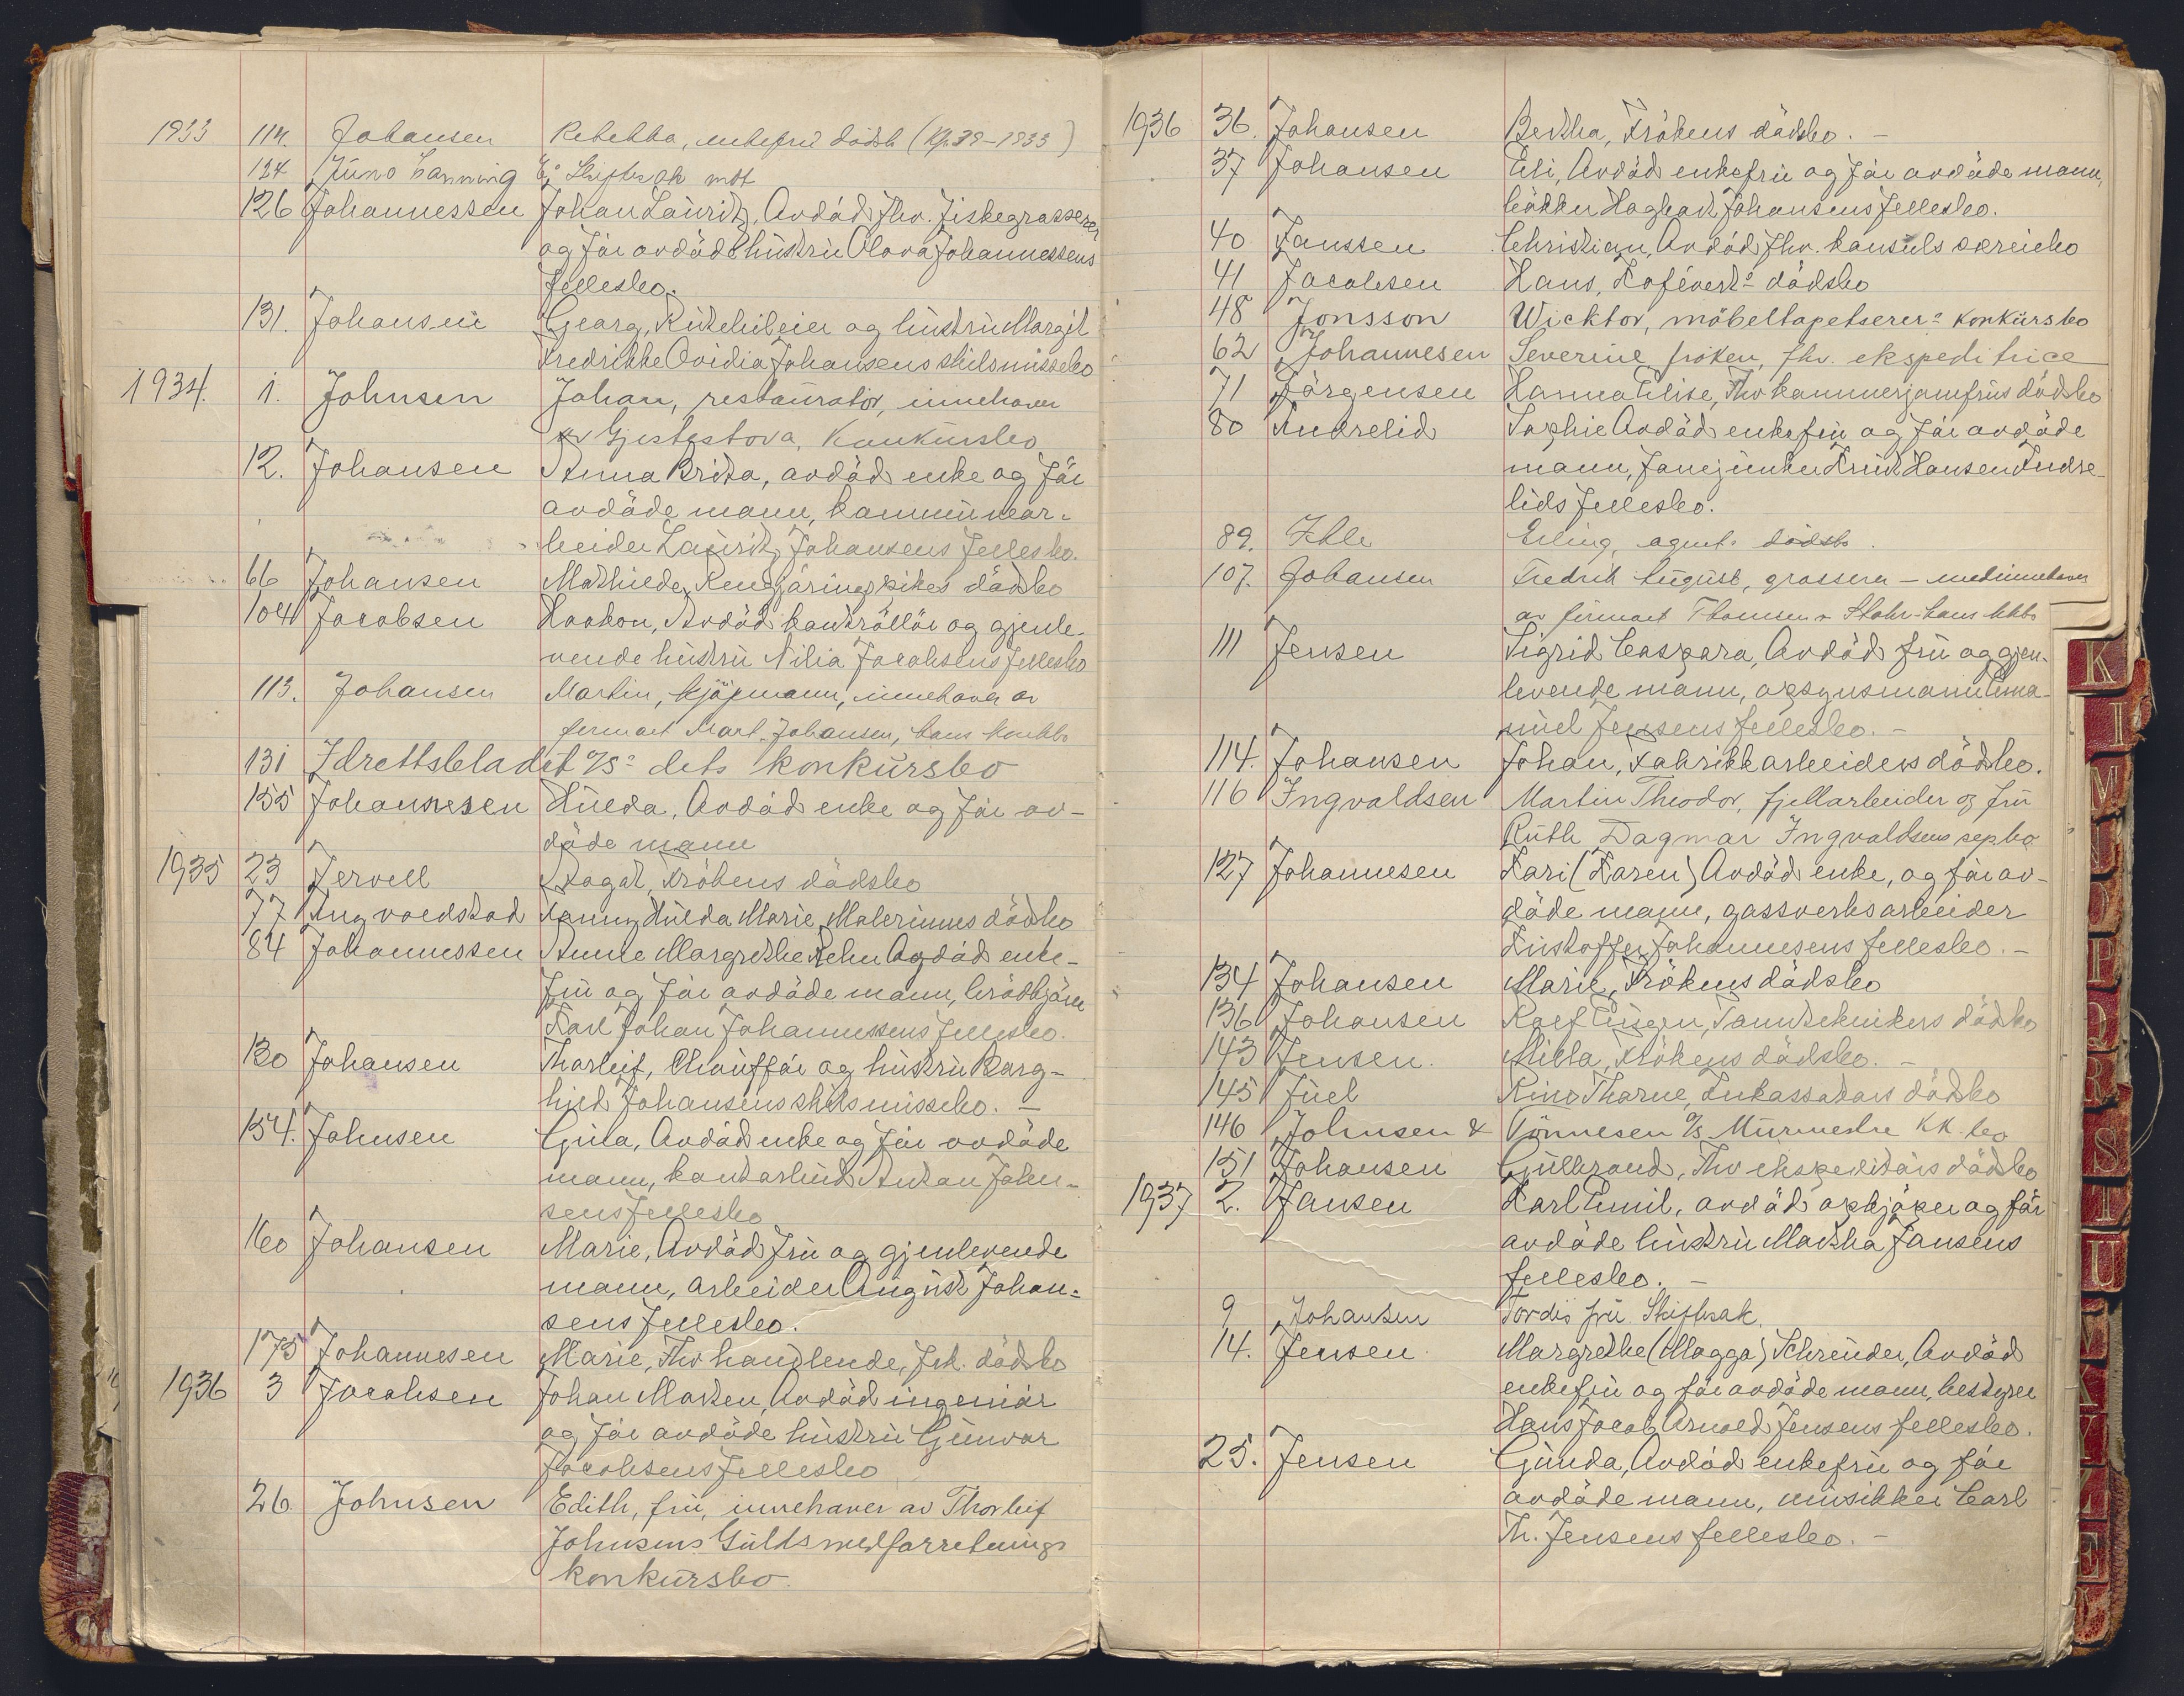 1933 114. Johansen Rebekka, enkefrü dödsb (Kfr. 39-1933)
124 Juno Lanning Ej Skiftesak mot
126 Johannessen Johan Lauritz, Avdöd fhv. fiskegrosserer
og för avdöde hüstrü Olava Johannessens
fellesbo.
131. Johansen Georg, Rütebileier og hüstrü Margit
Fredrikke Ovidia Johansens skilsmissebo
1934. 1. Johnsen Johan, restaüratör, innehaver
av Gjestestova, Konkürsbo
12. Johansen Anna Brita, avdöd enke og för
avdöde mann, kommünear-
beider Laüritz Johansens fellesbo.
66 Johansen Mathilde, Rengjöringspikes dödsbo
104 Jacobsen Haakon, Avdöd kontrollör og gjenle-
vende hüstrü Nilia Jacobsens fellesbo
113. Johansen Martin, kjöpmann, innehaver av
firmaet Mart. Johansen, hans konkbo
131 Idrettsbladet A/S: dets konkürsbo
155 Johannesen Hülda, Avdöd enke og för av-
döde mann
1935 23 Jervell Ragat, Frökens dödsbo
77 Ingvoldstad Fanny Hülda Marie, Malerinnes dödsbo
84 Johannessen Anne Margrethe Rehn Avdöd enke-
frü og för avdöde mann, brödkjörer
Karl Johan Johannessens fellesbo.
130 Johansen Thorleif, Chaüfför og hüstrü Borg-
hild Johansens skilsmissebo. -
154. Johnsen Güla, Avdöd enke og för avdöde
mann, kontorbüd Anton John-
sens fellesbo
160 Johansen Marie, Avdöd frü og gjenlevende
mann, arbeider Aügüst Johan-
sens fellesbo.
175 Johannesen Marie, Fhv handlende, frk. dödsbo
1936 3 Jacobsen Johan Morten, Avdöd ingeniör
og för avdöde hüstrü Günvor
Jacobsens fellesbo
26. Johnsen Edith, frü, innehaver av Thorleif
Johnsens Güldsmedforretnings
konkürsbo.
1936 36. Johansen Bertha, Frökens dödsbo. -
37 Johansen Eli, Avdöd enkefrü og för avdöde mann,
bökker Hagbart Johansens fellesbo.
40 Janssen Christian, Avdöd fhv. konsuls særeiebo
41 Jacobsen Hans, Kaféverts dödsbo
48 Jonsson Wicktor, möbeltapetserer: konkürsbo
62 Johannesen Severine fröken, fhv. ekspeditrice
71 Jörgensen Hanna Elise, Fhv kammerjomfrüs dödsbo
80 Indrelid Sophie Avdöd enkefrü og för avdöde
mann, Knüt Hansen Indre-
lids fellesbo.
89. Ihle Erling, agent: dödsbo.
107. Johansen Fredrik Aügüst, grosserer - medinnehaver
av firmaet Thomsen & Stohr - hans kkbo
111 Jensen Sigrid Caspara, Avdöd frü og gjen-
levende mann, opsynsmann Ema-
nüel Jensens fellesbo. -
114. Johansen Johan, Fabrikkarbeiders dödsbo.
116 Ingvaldsen Martin Theodor, fjellarbeider og frü
Rüth Dagmar Ingvaldsens sepbo
127 Johannesen Kari (Karen) Avdöd enke, og för av-
döde mann, gassverksarbeider
Kristoffer Johannesens fellesbo. -
134 Johansen Marie, Frökens dödsbo
136 Johansen Rolf Eügen, Tannteknikers dödsbo
143 Jensen. Milla, Frökens dödsbo. -
145 Jüel Rino Thorne, Inkassators dödsbo
146 Johnsen & Tönnesen A/S Mürmestre KK. bo
151 Johansen Güllbrand, Fhv ekspeditörs dödsbo
1937 2. Jansen Karl Emil, avdöd opkjöper og för
avdöde hüstrü Martha Jansens
fellesbo. -
9 Johansen Tordis frü Skiftesak.
14. Jensen Margrethe (Magga) Schreüder, Avdöd
enkefrü og för avdöde mann, bestyrer
Hans Jacob Arnold Jensens fellesbo.
25. Jensen Günda, Avdöd enkefrü og för
avdöde mann, müsikker Carl
Th. Jensens fellesbo. -
K
L
M
N
O
P
Q
R
S
T
U